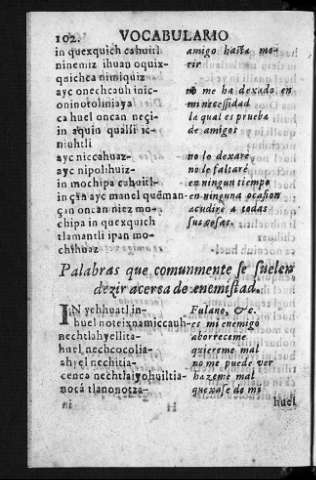 102. VOCABULARIO
in quexquich cahuitl amigo hasta mo-
ninemiz ihuan oquix- rir
quichca nimiquiz
ayc onechcauh inic- no me ha dexado en
oninotoliniaya mi necessidad
ca huel oncan neçi- la qual es prueba
in aquin qualli ic- de amigos
niuhtli
ayc niccahuaz- no lo dexare
ayc nipolihuiz- no le faltare
in mochipa cahuitl- en ningun tiempo
in çan ayc manel quēman- en ninguna ocasion
çan oncan niez mo- acudire a todas
chipa in quexquich sus cosas.
tlamantli ipan mo-
chihuaz
Palabras que comunmente se suelen
dezir acersa de enemistad.
IN yehhuatl in- Fulano, &c.
huel noteixnamiccauh- es mi enemigo
nechtlahyellita- aborreceme
huel nechcocolia- quiereme mal
ahyel nechitta- no me puede ver
cenca nechtlaiyohuiltia- hazeme mal
noca tlanonotza- quexase de mi
huel